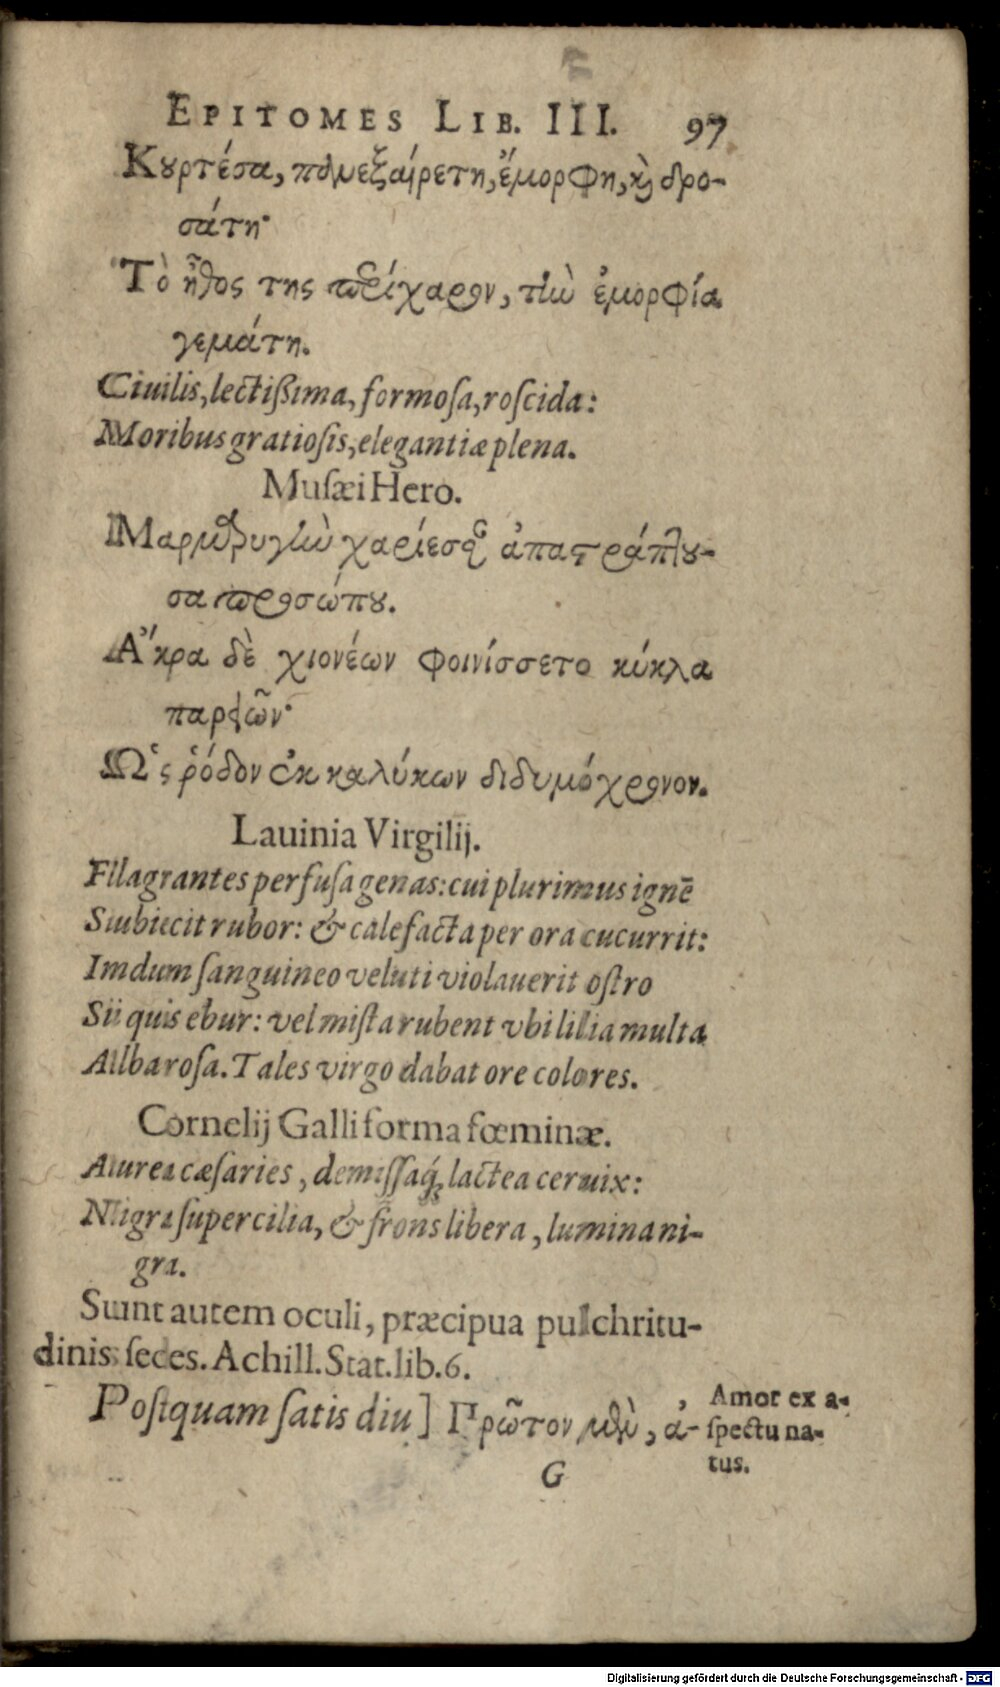 EPITOMES LIB. III. 97
Κȣρτέσα, πολυεξαίρετη, ἔμορφη, κ̀ δρο-
σάτη·
Τὸ ἦθος της περίχαρον, τὴν ἐμορφία
γεμάτη.
Ciuilis, lectißima, formoſa, roſcida:
Moribus gratioſis, elegantiæ plena.
Muſæi Hero.
Μαρμαρυγὴν χαρίεσσαν ἀπαστράπτȣ-
σα προσώπȣ.
Ἄκρα δὲ χιονέων φοινίσσετο κύκλα
παρειῶν·
Ὡς ῥόδον ἐκ καλύκων διδυμόχρονον.
Lauinia Virgilij.
Flagrantes perfuſa genas: cui plurimus ignē
Subiecit rubor: & calefacta per ora cucurrit:
Indum ſanguineo veluti violauerit oſtro
Si quis ebur: vel miſta rubent vbi lilia multa
Alba roſa. Tales virgo dabat ore colores.
Cornelij Galli forma fœminæ.
Aurea cæſaries, demiſſaq́; lactea ceruix:
Nigra ſupercilia, & frons libera, lumina ni-
gra.
Sunt autem oculi, præcipua pulchritu-
dinis ſedes. Achill. Stat. lib. 6.
Poſtquam ſatis diu] Πρῶτον μὲν, ἀ-
Amor ex a-
ſpectu na-
tus.
G
Digitalisierung gefördert durch die Deutsche Forschungsgemeinschaft - DFG